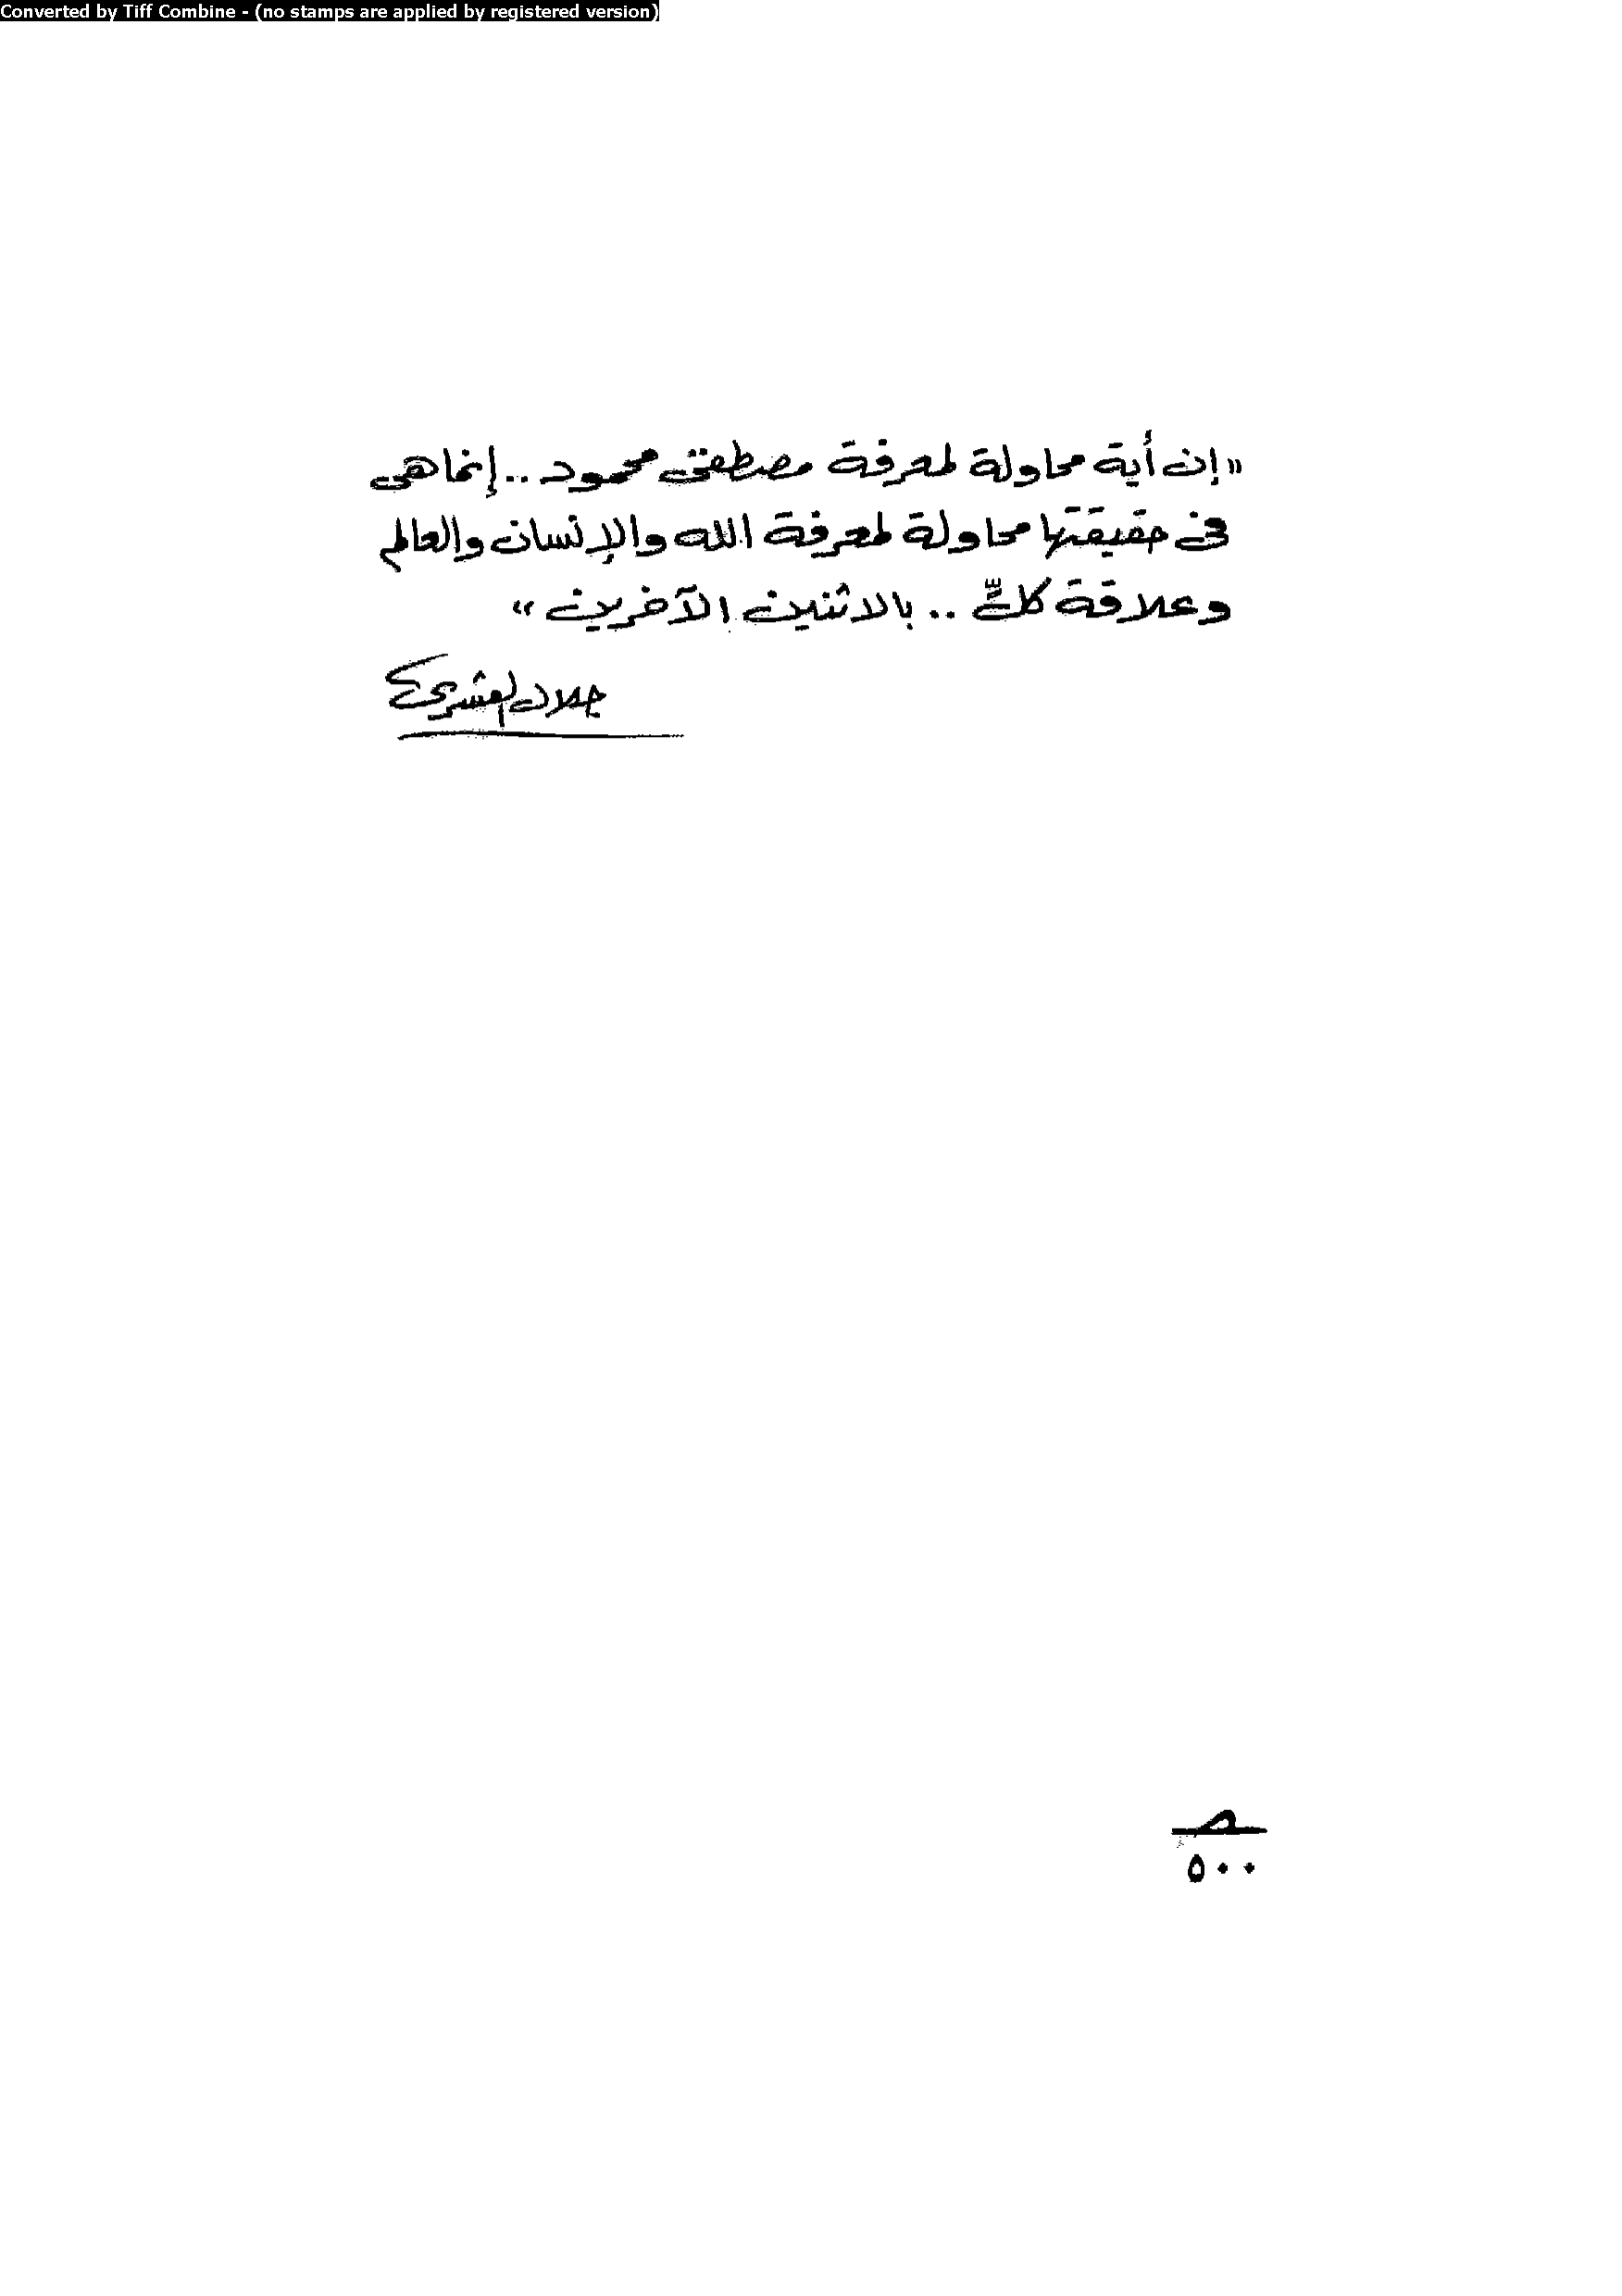 Converted by Tiff Combine - (no stamps are applied by registered version)
«إن أية محاولة لمعرفة مصطفى محمود .. إنما هى
فى حقيقتها محاولة لمعرفة الله والإنسان والعالم
وعلاقة كلٍّ .. بالاثنين الآخرين»
جلال العشرى
٥٠٠